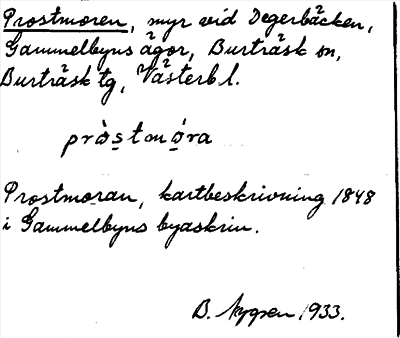 Prostmoren, myr vid Degerbäcken,
Gammelbyns ägor, Burträsk sn,
Burträsk tg, Västerb l.
pròstmọra
Prostmoran, kartbeskrivning 1848
i Gammelbyns byaskrin.
B. 1933.